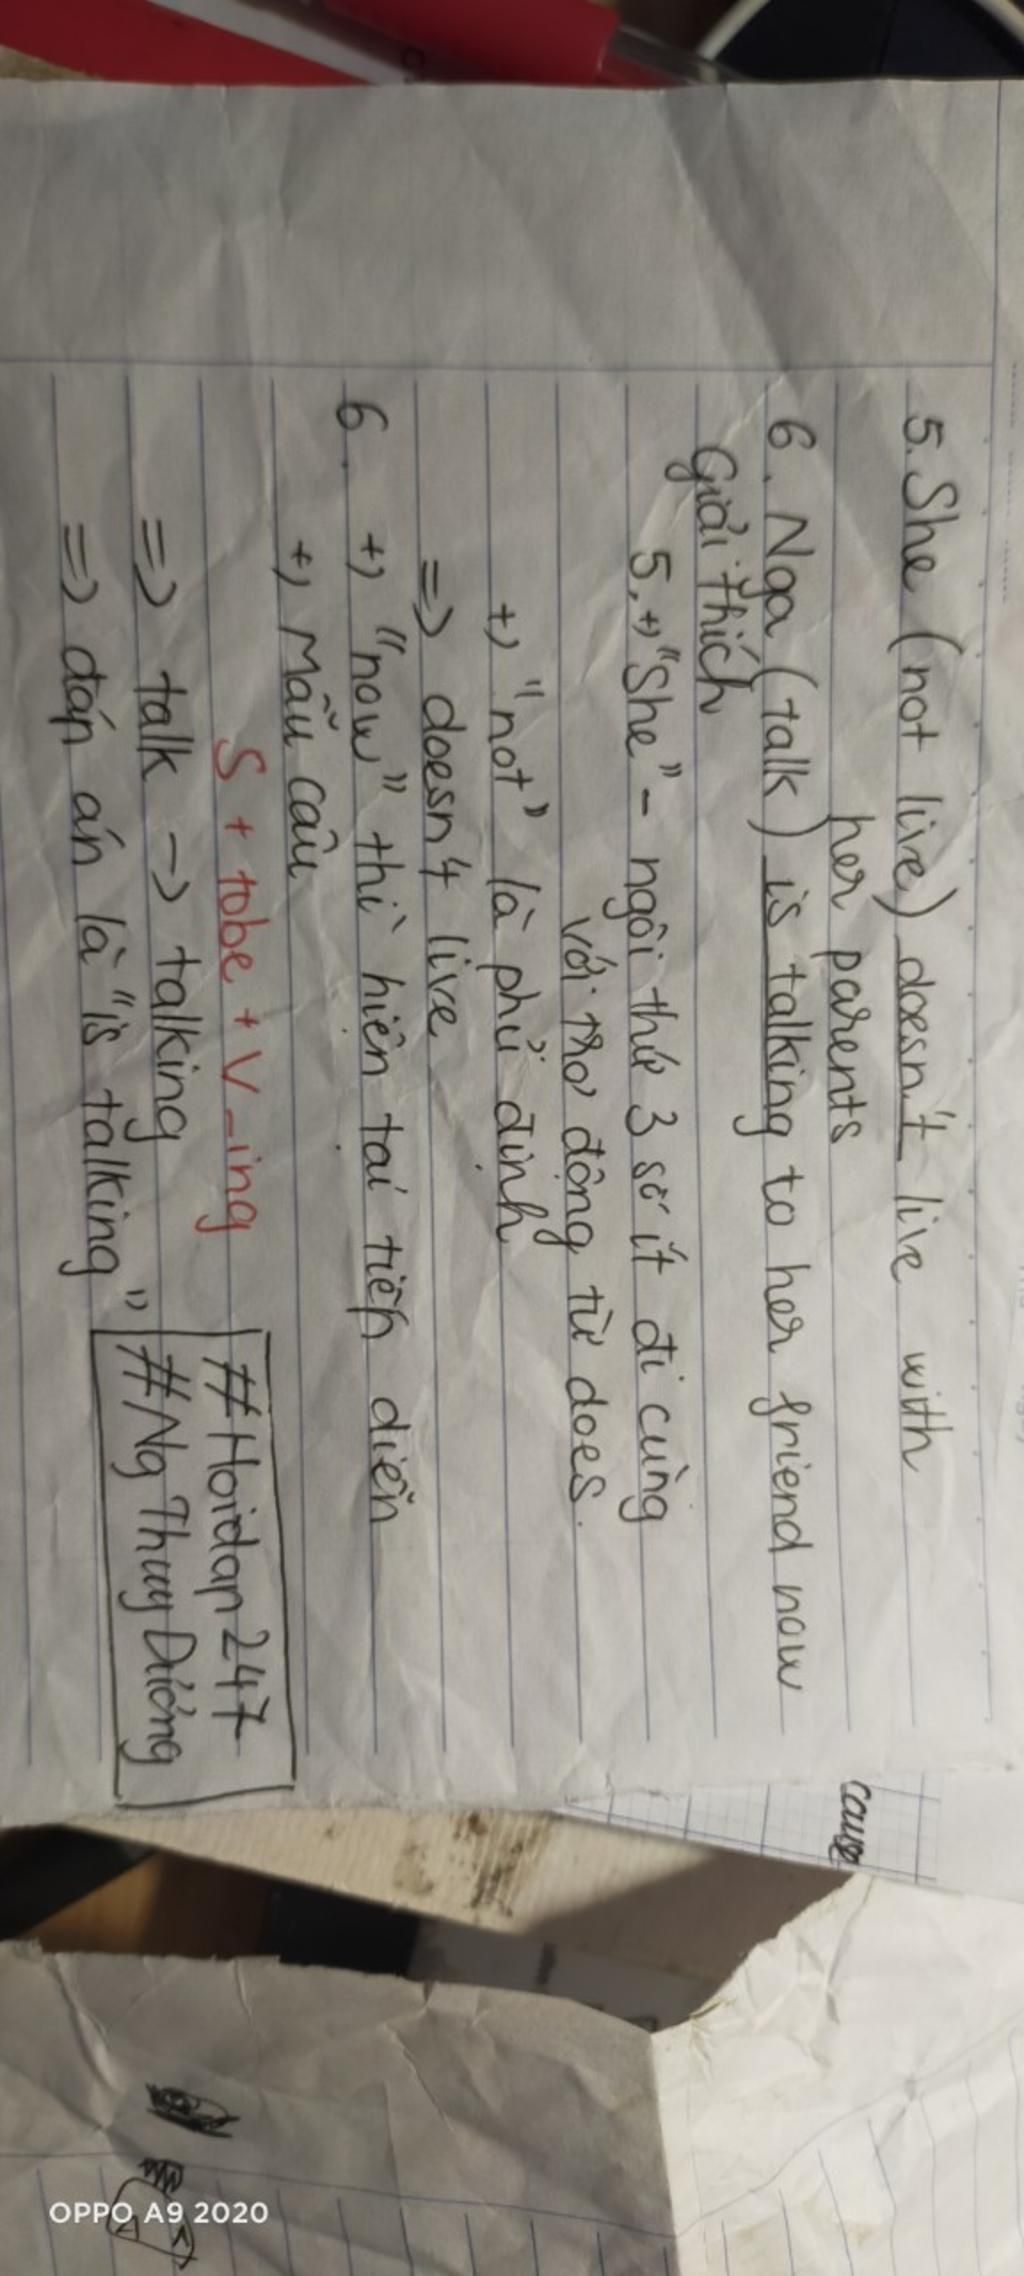 5. She (not live) doesn't live with
her parents
6. Nga (talk) is talking to her friend now
Giải thích
5, +, "She" - ngôi thứ 3 số ít đi cùng
với trợ động từ does.
+, "not" là phủ định
=> doesn't live
6. +, "now" thì hiện tại tiếp diễn
+, Mẫu câu
S + tobe + V-ing
=> talk -> talking
=> đáp án là "is talking"
#Hoidap247
#Ng Thuy Dương
cause
OPPO A9 2020